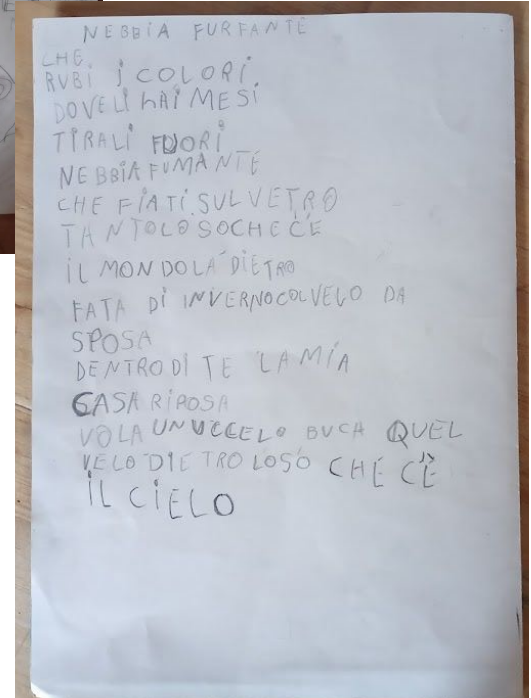 NEBBIA FURFANTE
CHE
RUBI I COLORI
DOVELI HAI MESI
TIRALI FUORI
NEBBIA FUMANTE
CHE FIATI SUL VETRO
TANTOLOSOCHECÈ
IL MONDOLA DIETRO
FATA DI INVERNOCOLVELO DA
SPOSA
DENTRODI TE LA MIA
CASA RIPOSA
VOLA UNUCCELO BUCA QUEL
VELO DIETRO LOSO CHE CÈ
IL CIELO